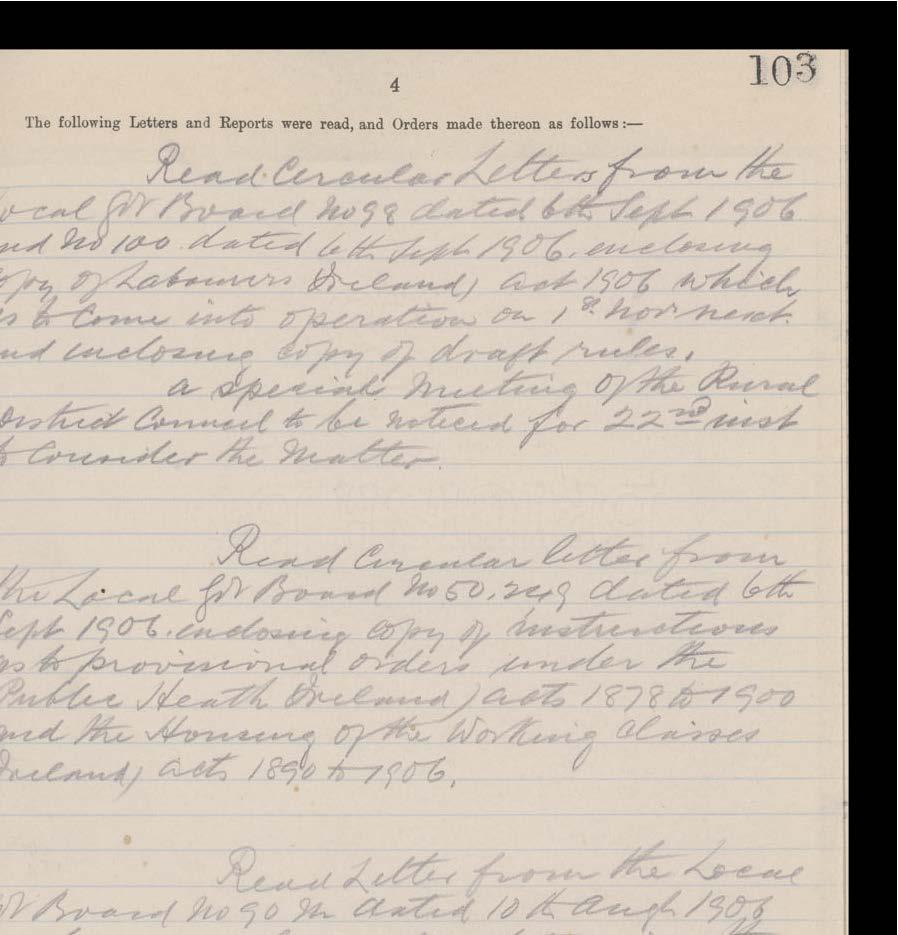 103
4
The following Letters and Reports were read, and Orders made thereon as follows :—
Read Circular Letters from the
ocal Gvt Board No 98 dated 6th Sept 1906
nd No 100 dated 6th Sept 1906. enclosing
opy of Labourers Ireland) act 1906 which
is to Come into operation on 1st Novr next.
nd enclosing copy of draft rules.
a special Meeting of the Rural
District Council to be noticed for 22nd inst
to Consider the Matter.
Read Circular letter from
the Local Gvt Board No 50, dated 6th
Sept 1906. enclosing copy of instructions
as to provisional orders under the
Public Heath Ireland) acts 1878 to 1900
and the Housing of the Working Classes
Ireland) acts 1890 to 1906.
Read Letter from the Local
vt Board No 90 M dated 10th Augt 1906